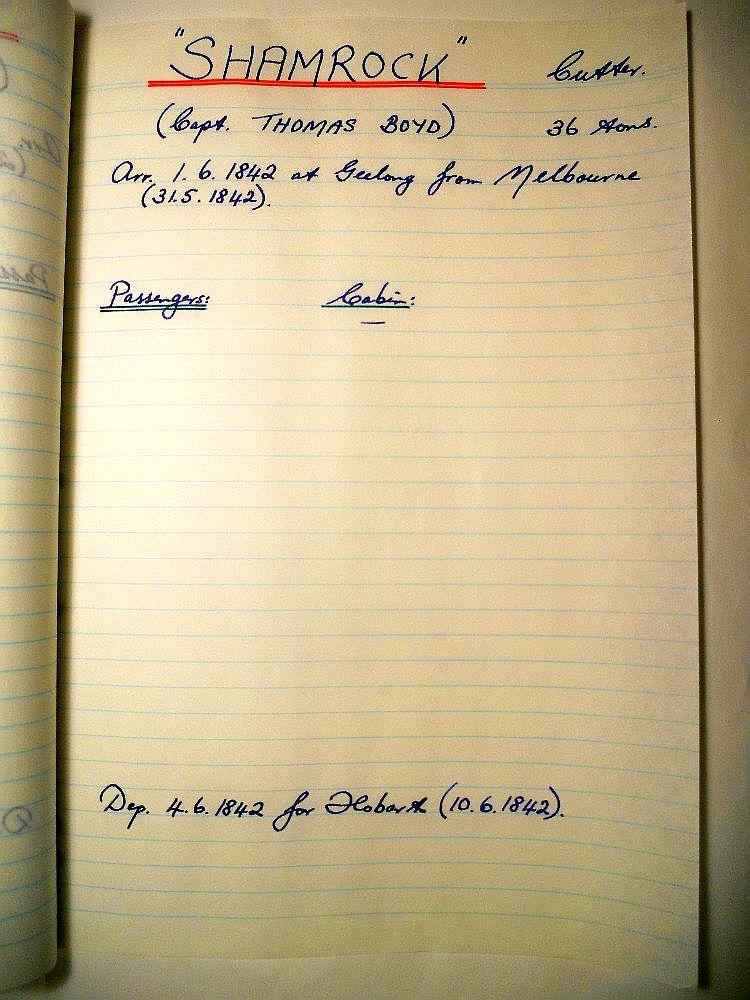 "SHAMROCK" Cutter.
(Capt. THOMAS BOYD) 36 tons.
Arr. 1.6.1842 at Geelong from Melbourne
(31.5.1842).
Passengers: Cabin:
—
Dep. 4.6.1842 for Hobart (10.6.1842).